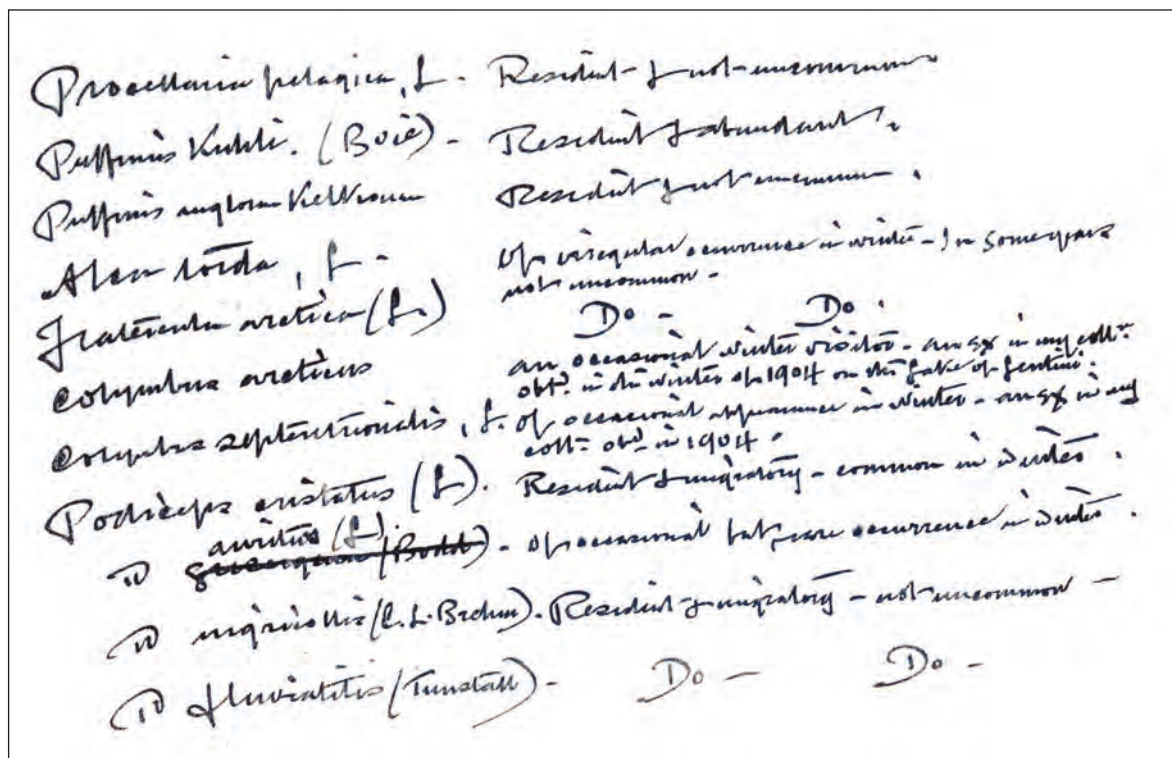 Procellaria pelagica, L. - Resident & not uncommon -
Puffinus Kuhli. (Boie) - Resident & abundant.
Puffinus anglorum Resident & not uncommon.
Alca torda, L. - Of irregular occurrence in winter - in some years
not uncommon -
Fratercula arctica (L.) Do - Do.
Colymbus arcticus an occasional winter visitor - an ex in my coll:
obtd. in the winter of 1904 on the Lake of Lentini.
Colymbus septentrionalis, L. of occasional appearance in winter - an ex in my
coll: obd in 1904.
Podiceps cristatus (L). Resident & migratory - common in winter.
auritus (L).
D (Bodd) - of occasional but rare occurrence in winter.
D nigricollis (C. L. Brehm). Resident & migratory - not uncommon -
D fluviatilis (Tunstall) - Do - Do -